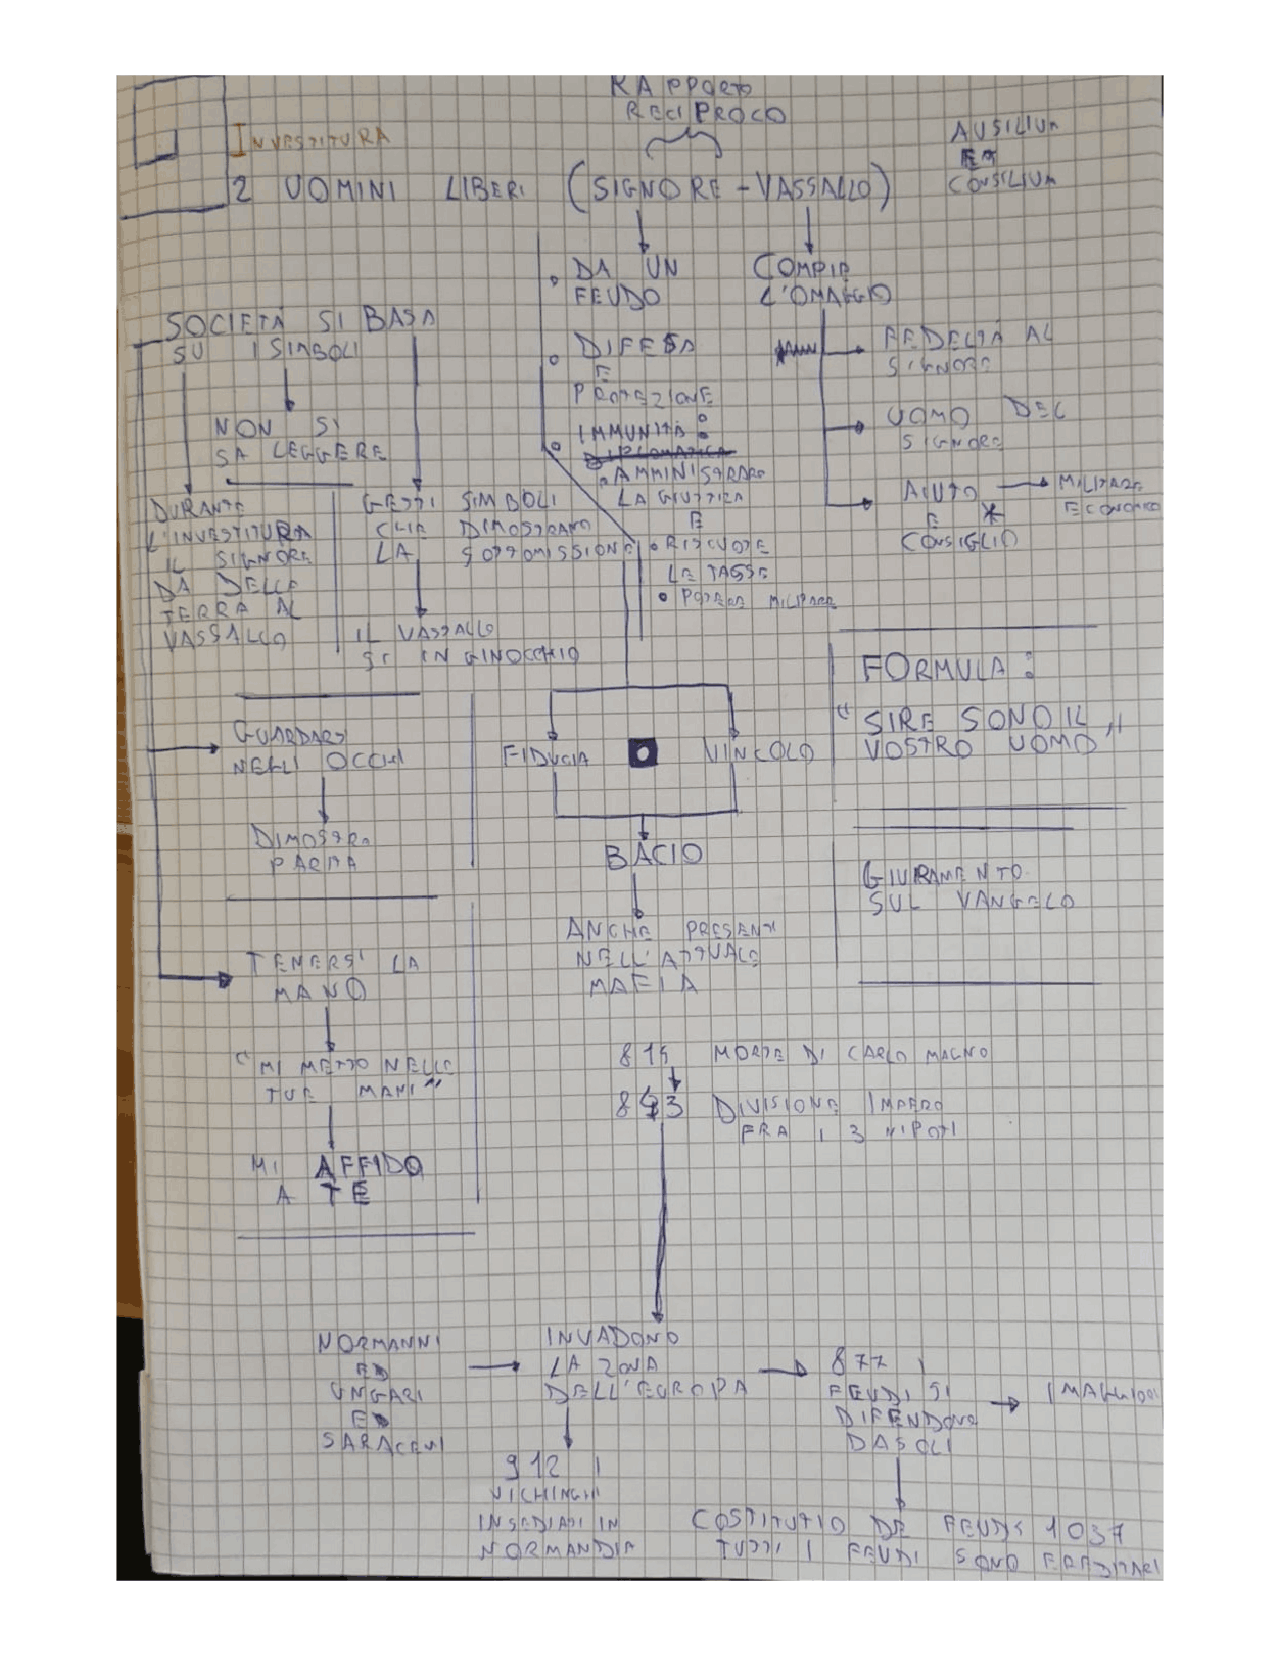 RAPPORTO
RECIPROCO
INVESTITURA
AUSILIUM
ET
CONSILIUM
2 UOMINI LIBERI (SIGNORE - VASSALLO)
DA UN
FEUDO
COMPIE
L'OMAGGIO
SOCIETÀ SI BASA
SU I SIMBOLI
DIFESA
E
PROTEZIONE
FEDELTÀ AL
SIGNORE
NON SI
SA LEGGERE
IMMUNITÀ:
AMMINISTRARE
LA GIUSTIZIA
E
RISCUOTE
LE TASSE
POTERE MILITARE
UOMO DEL
SIGNORE
AIUTO
E *
CONSIGLIO
MILITARE
ECONOMICO
DURANTE
L'INVESTITURA
IL SIGNORE
DA DELLE
TERRA AL
VASSALLO
GESTI SIMBOLI
CHE DIMOSTRANO
LA SOTTOMISSIONE
IL VASSALLO
SI INGINOCCHIO
FORMULA:
"SIRE SONO IL
VOSTRO UOMO"
GUARDARSI
NEGLI OCCHI
FIDUCIA
VINCOLO
DIMOSTRA
PARITÀ
BACIO
GIURAMENTO
SUL VANGELO
ANCHE PRESENTI
NELL'ATTUALE
MAFIA
TENERSI LA
MANO
"MI METTO NELLE
TUE MANI"
MI AFFIDO
A TE
814 MORTE DI CARLO MAGNO
843 DIVISIONE IMPERO
FRA I 3 NIPOTI
NORMANNI
ED
UNGARI
E
SARACENI
INVADONO
LA ZONA
DELL'EUROPA
877 I
FEUDI SI
DIFENDONO
DA SOLI
912 I
VICHINGHI
INSEDIATI IN
NORMANDIA
COSTITUTIO DE FEUDIS 1037
TUTTI I FEUDI SONO EREDITARI